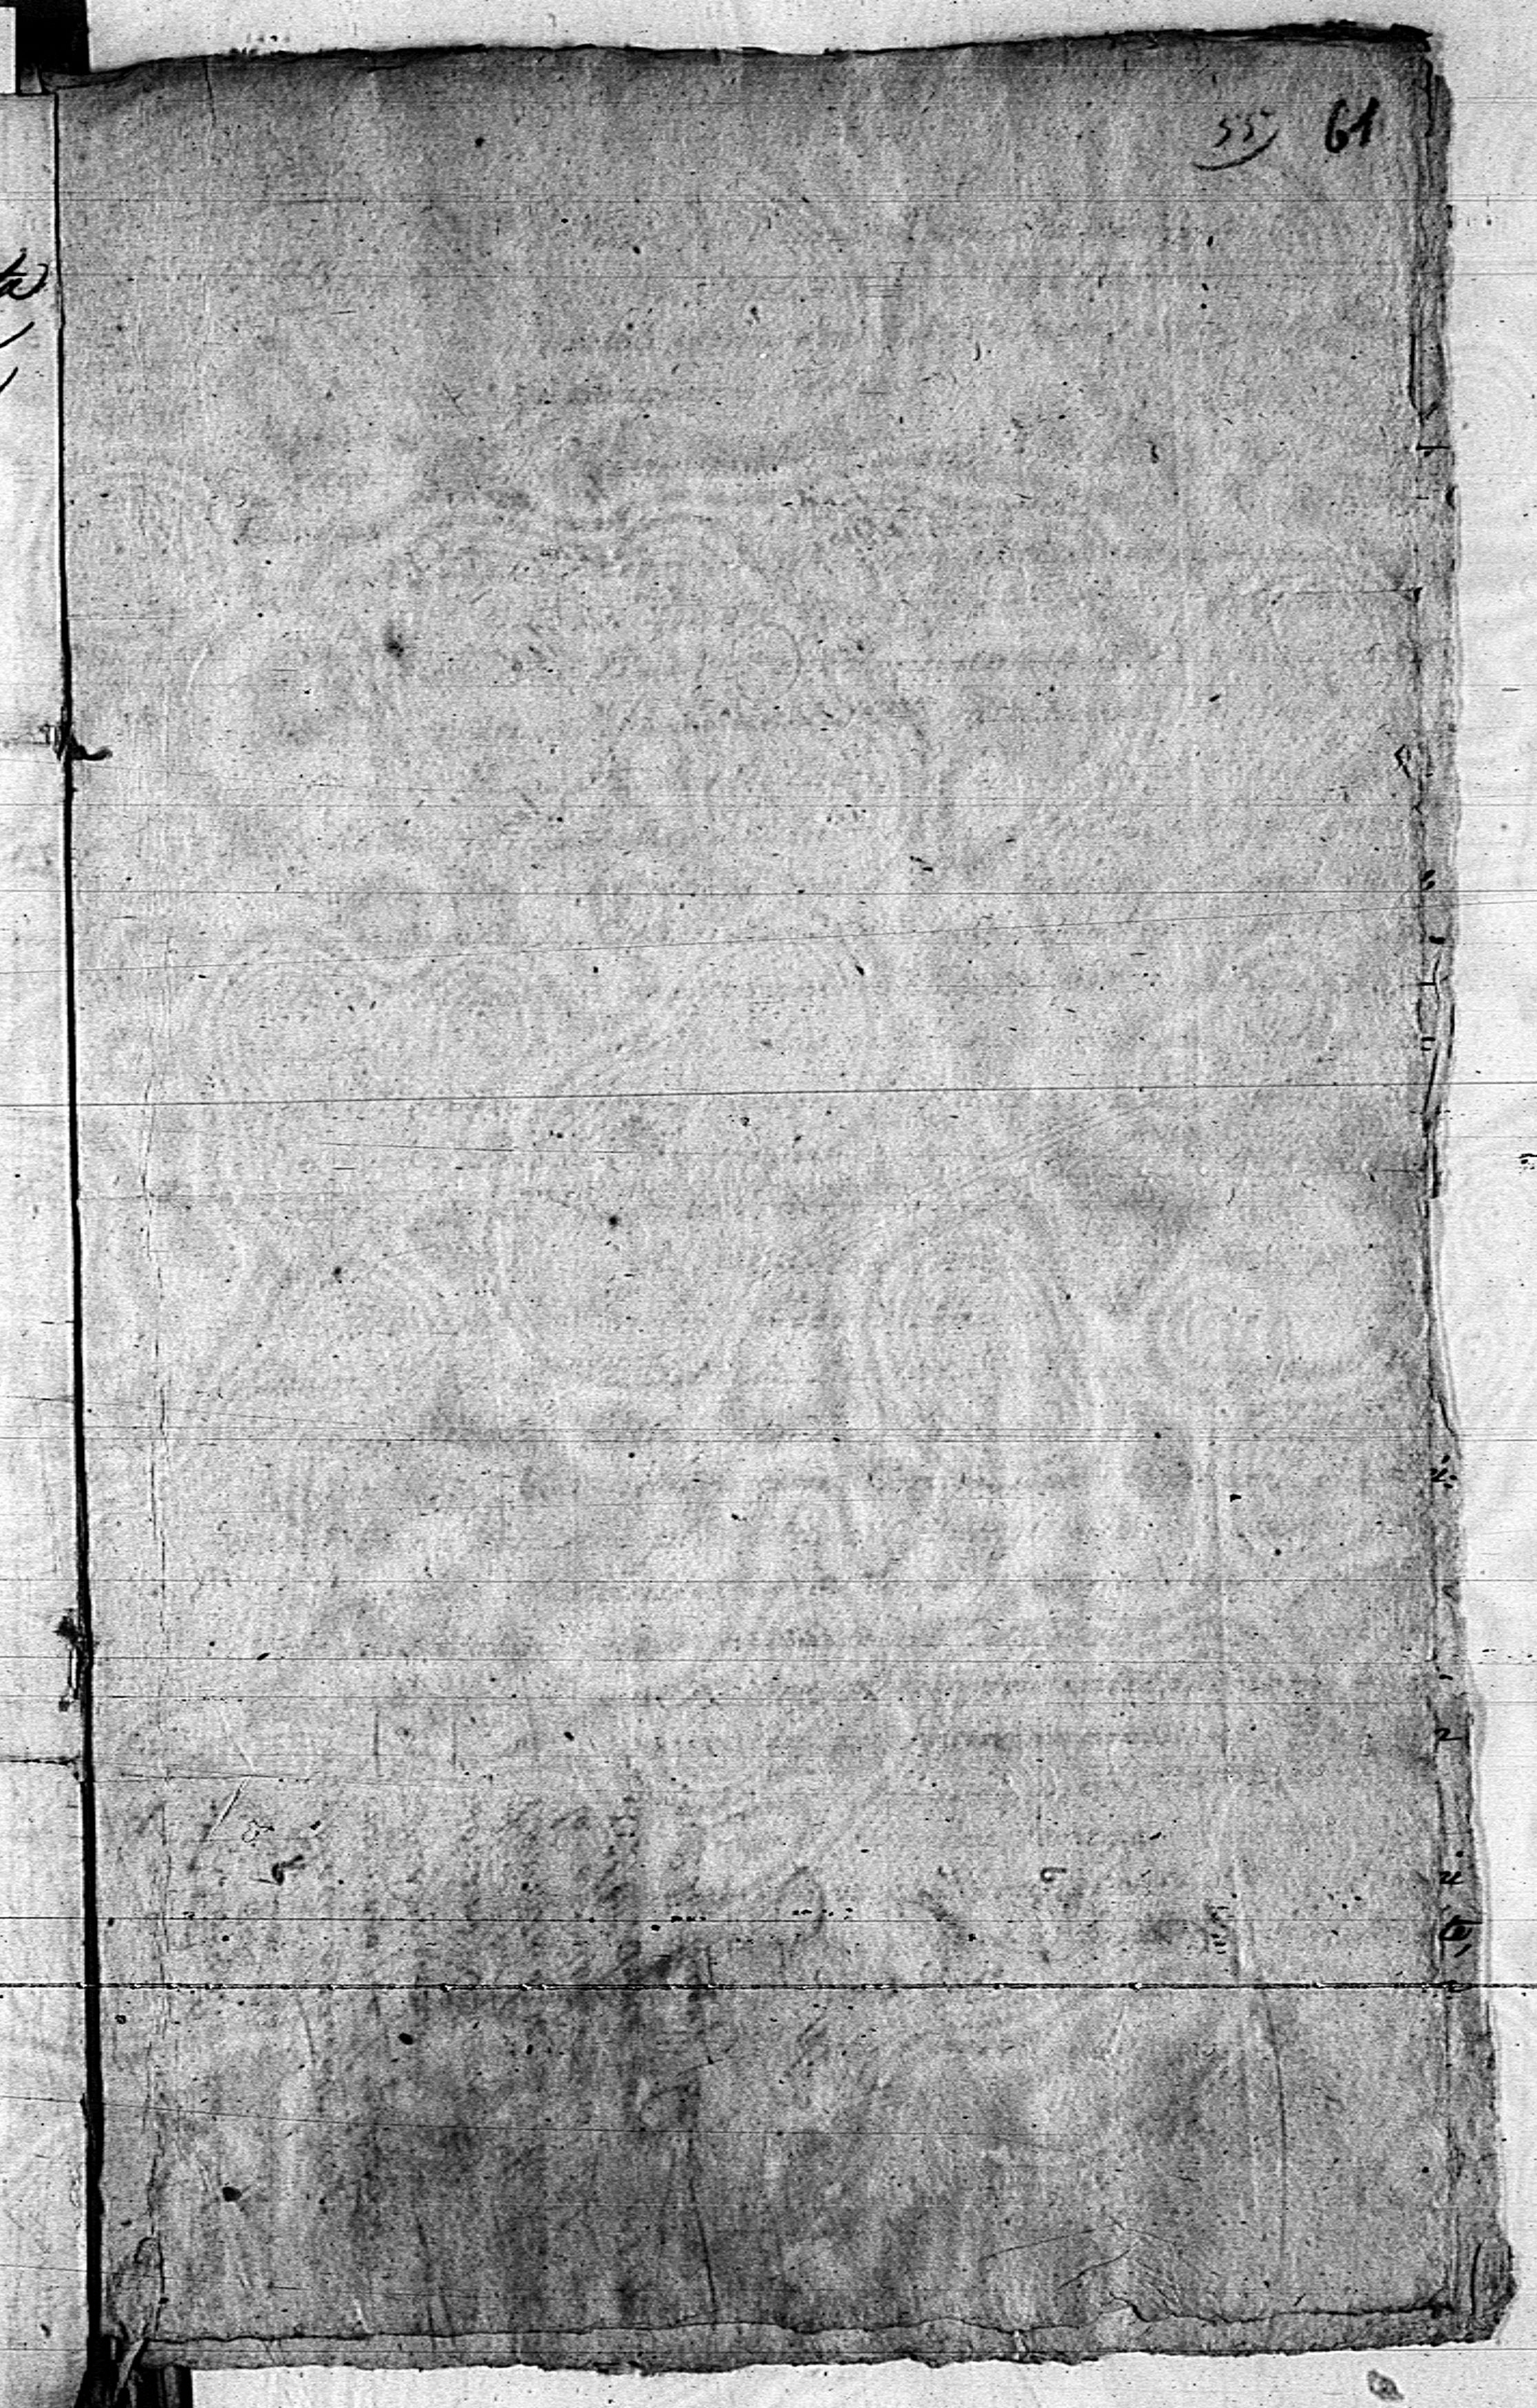 55 61